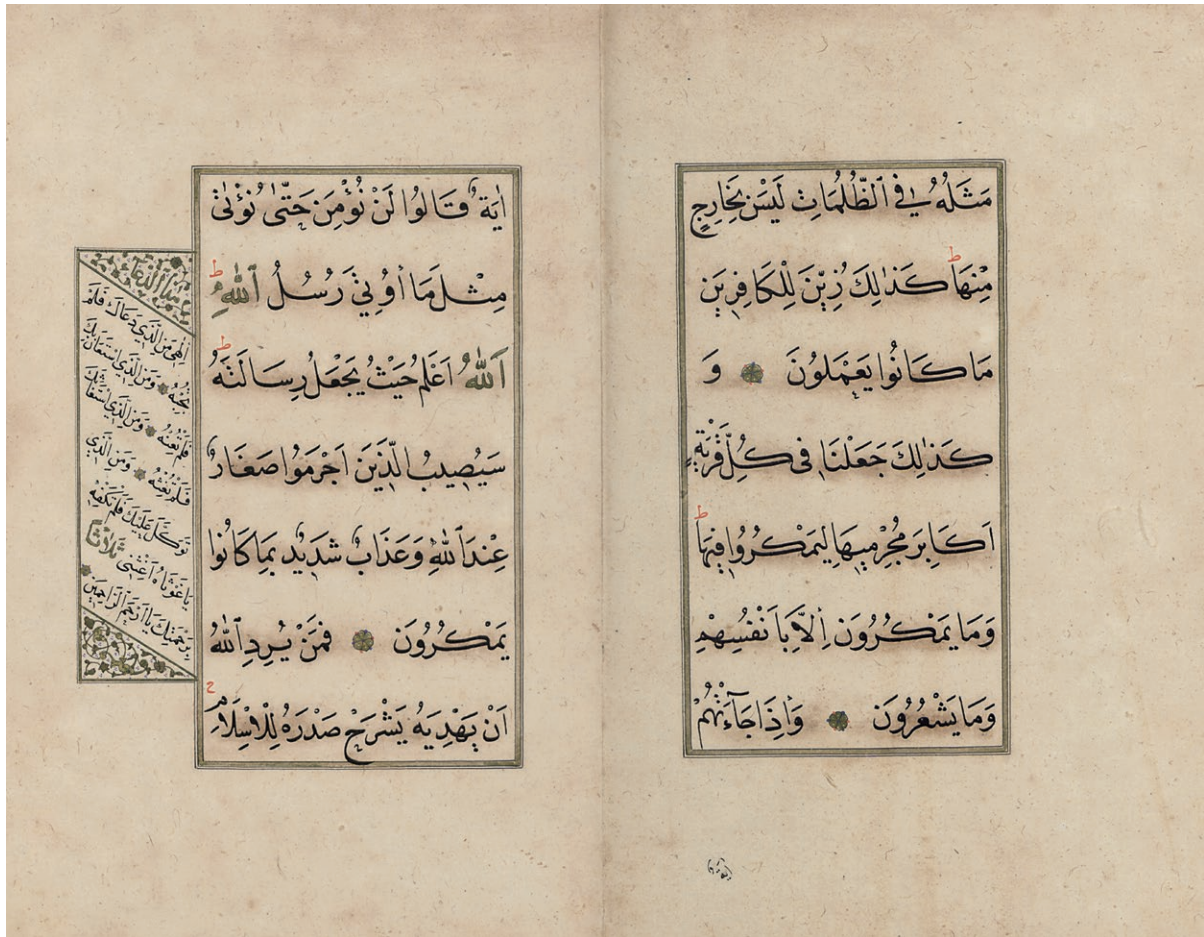 مَثَلُهُ فِي ٱلظُّلُمَاتِ لَيْسَ بِخَارِجٍ
مِنْهَا ط كَذٰلِكَ زُيِّنَ لِلْكَافِرِينَ
مَا كَانُوا يَعْمَلُونَ وَ
كَذٰلِكَ جَعَلْنَا فِى كُلِّ قَرْيَةٍ
اَكَابِرَ مُجْرِمِيهَا لِيَمْكُرُوا فِيهَا ط
وَمَا يَمْكُرُونَ اِلَّا بِاَنْفُسِهِمْ
وَمَا يَشْعُرُونَ وَاِذَا جَآءَتْهُمْ
اٰيَةٌ قَالُوا لَنْ نُؤْمِنَ حَتّٰى نُؤْتٰى
مِثْلَ مَا اُوتِيَ رُسُلُ ٱللّٰهِ ط
اَللّٰهُ اَعْلَمُ حَيْثُ يَجْعَلُ رِسَالَتَهُ ط
سَيُصِيبُ الَّذِينَ اَجْرَمُوا صَغَارٌ
عِنْدَ ٱللّٰهِ وَعَذَابٌ شَدِيدٌ بِمَا كَانُوا
يَمْكُرُونَ فَمَنْ يُرِدِ ٱللّٰهُ
اَنْ يَهْدِيَهُ يَشْرَحْ صَدْرَهُ لِلْاِسْلَامِ ح
اِلٰهِي مَنِ الَّذِي دَعَاكَ فَلَمْ
تُجِبْهُ وَمَنِ الَّذِي اسْتَعَانَ بِكَ
فَلَمْ تُعِنْهُ وَمَنِ الَّذِي اسْتَغَاثَ بِكَ
فَلَمْ تُغِثْهُ وَمَنِ الَّذِي
تَوَكَّلَ عَلَيْكَ فَلَمْ تَكْفِهِ
يَا غَوْثَاهُ اَغِثْنِي ثَلَاثًا
بِرَحْمَتِكَ يَا اَرْحَمَ الرَّاحِمِينَ